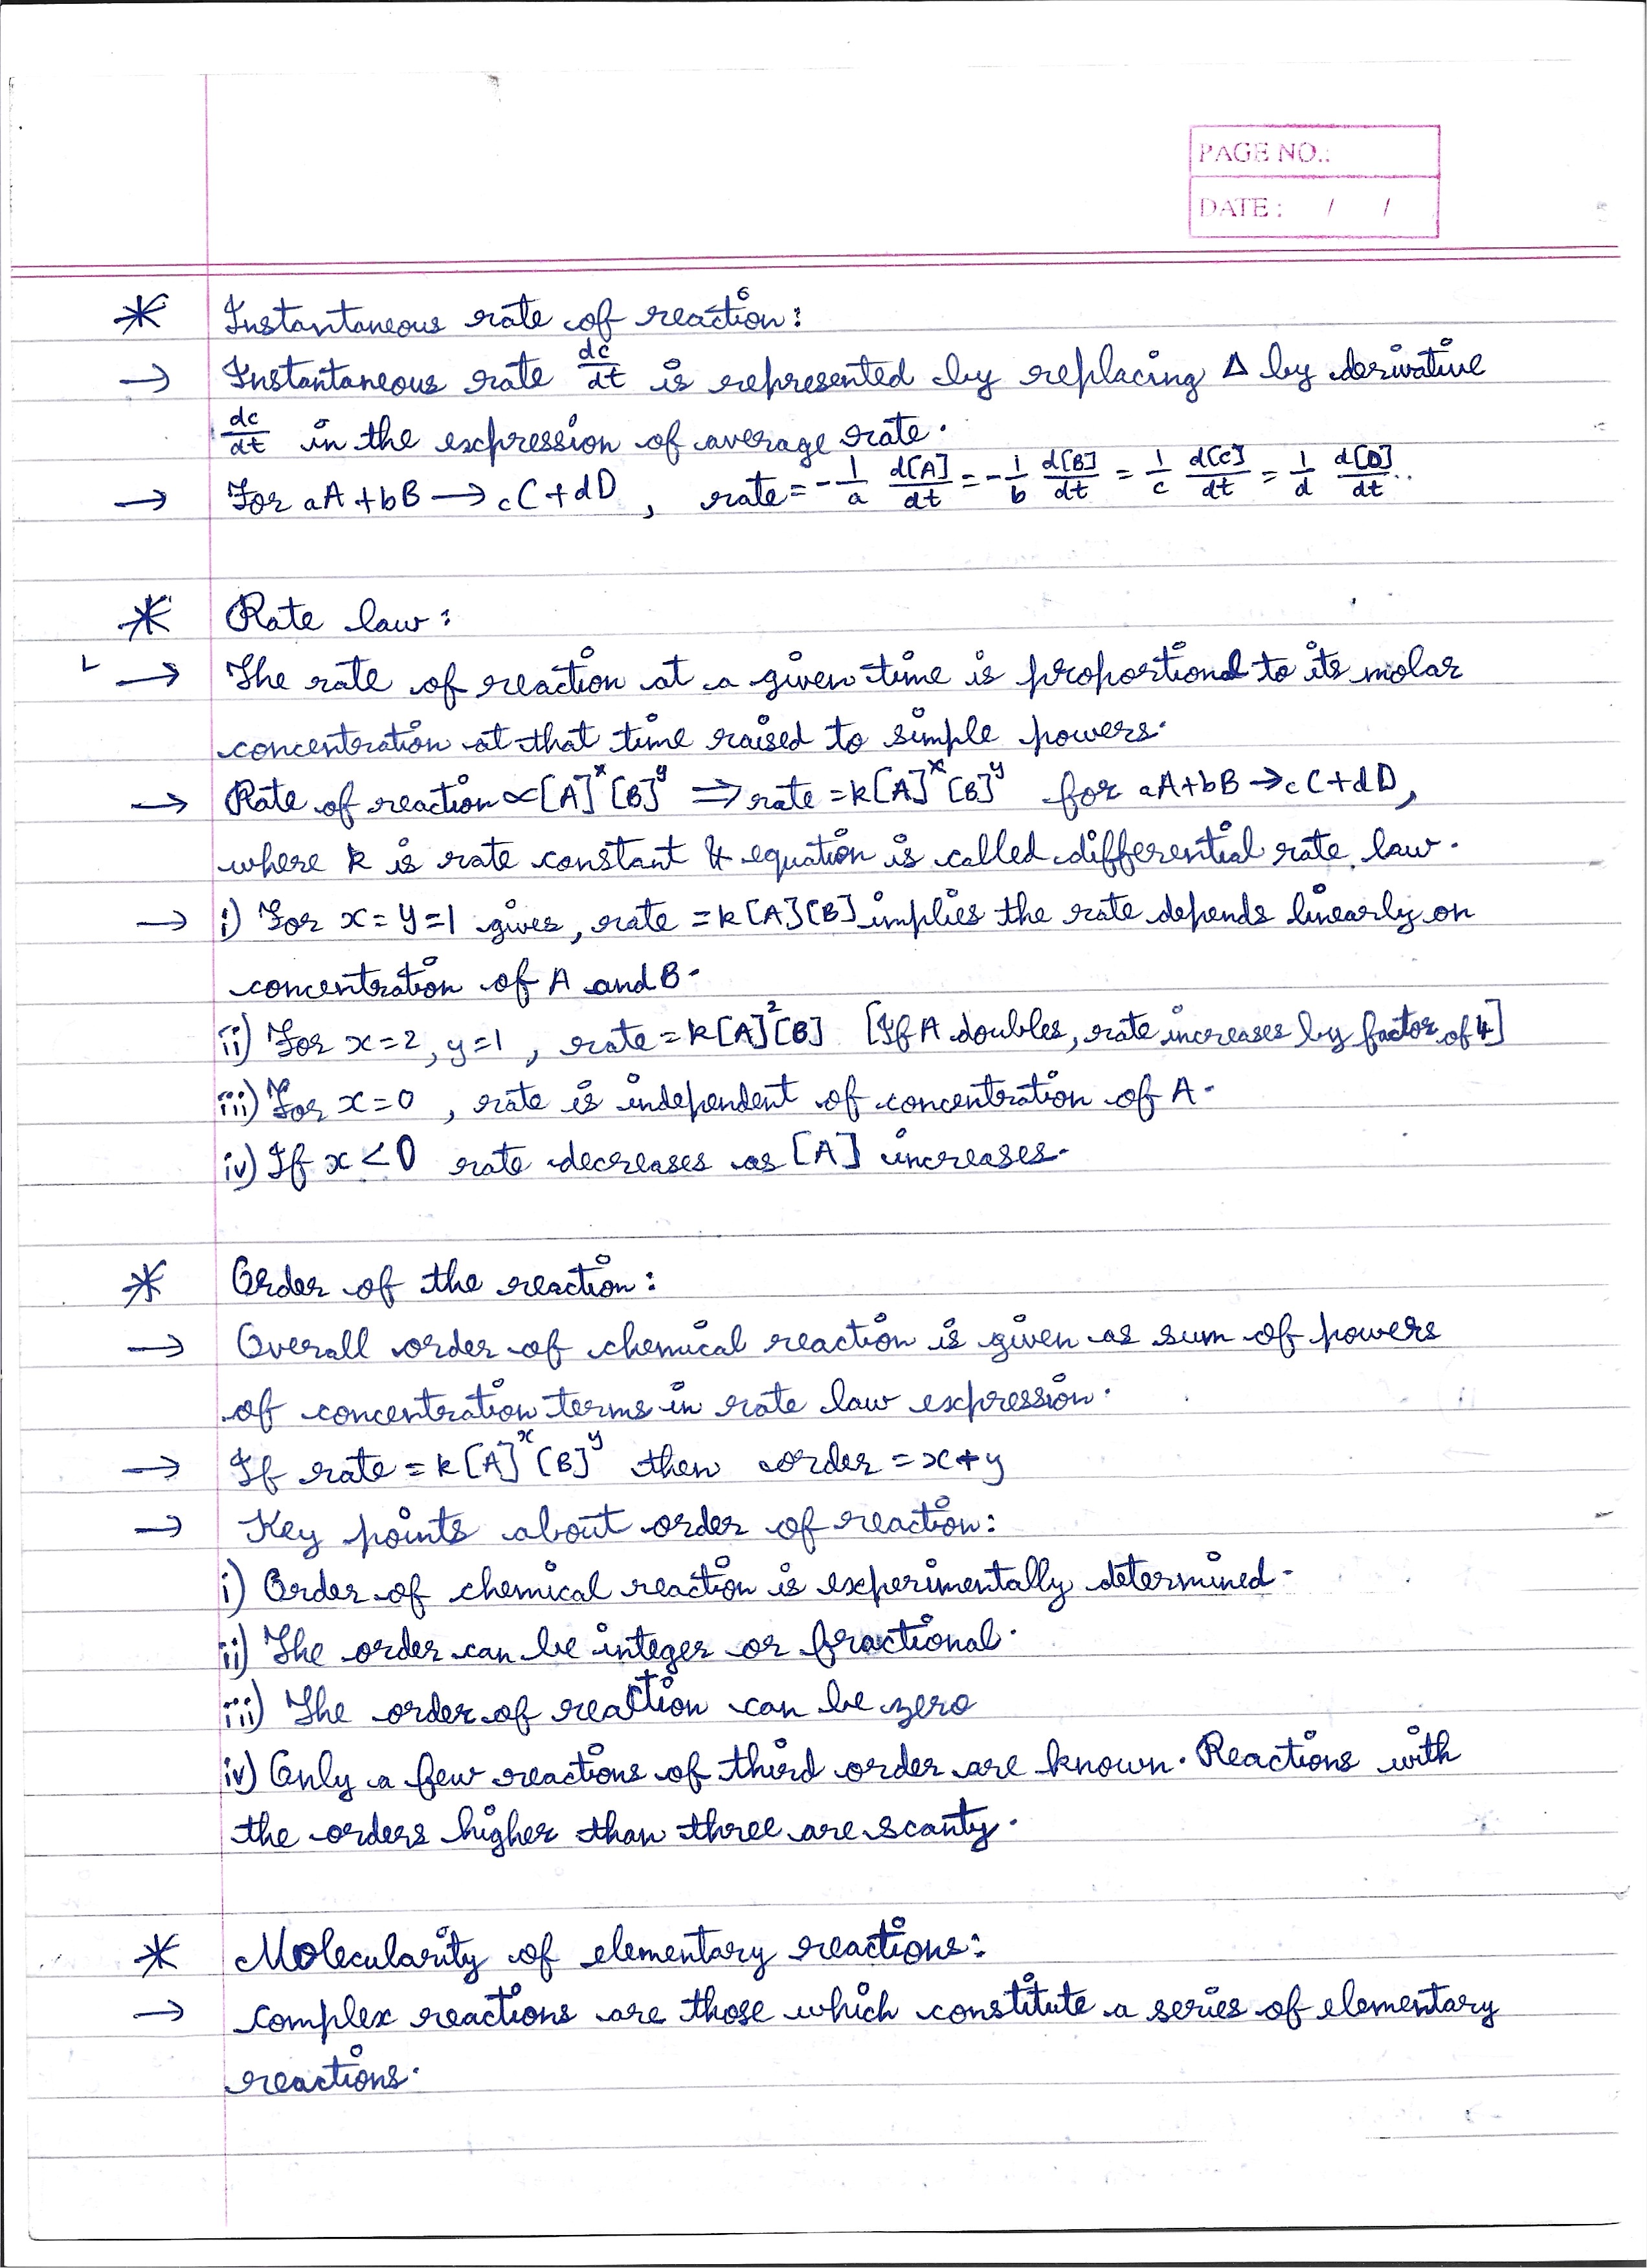 PAGE NO.:
DATE: / /
* Instantaneous rate of reaction:
→ Instantaneous rate dc/dt is represented by replacing Δ by derivative
dc/dt in the expression of average rate.
→ For aA+bB→cC+dD, rate=-1/a d[A]/dt=-1/b d[B]/dt=1/c d[C]/dt=1/d d[D]/dt..
* Rate law:
→ The rate of reaction at a given time is proportional to its molar
concentration at that time raised to simple powers.
→ Rate of reaction∝[A]^x[B]^y ⇒rate=k[A]^x[B]^y for aA+bB→cC+dD,
where k is rate constant & equation is called differential rate law.
→ i) For x=y=1 gives, rate=k[A][B] implies the rate depends linearly on
concentration of A and B.
ii) For x=2, y=1, rate=k[A]²[B] [If A doubles, rate increases by factor of 4]
iii) For x=0, rate is independent of concentration of A.
iv) If x<0 rate decreases as [A] increases.
* Order of the reaction:
→ Overall order of chemical reaction is given as sum of powers
of concentration terms in rate law expression.
→ If rate=k[A]^x[B]^y then order=x+y
→ Key points about order of reaction:
i) Order of chemical reaction is experimentally determined.
ii) The order can be integer or fractional.
iii) The order of reaction can be zero
iv) Only a few reactions of third order are known. Reactions with
the orders higher than three are scanty.
* Molecularity of elementary reactions:
→ complex reactions are those which constitute a series of elementary
reactions.